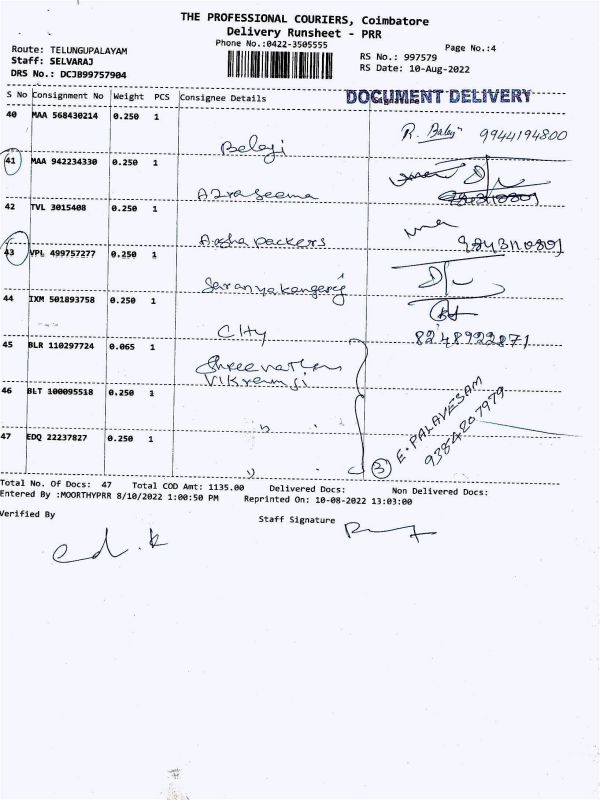 THE PROFESSIONAL COURIERS, Coimbatore
Delivery Runsheet - PRR
Phone No.:0422-3505555
Page No.:4
Route: TELUNGUPALAYAM
Staff: SELVARAJ
DRS No.: DCJB99757904
RS No.: 997579
RS Date: 10-Aug-2022
S No Consignment No Weight PCS Consignee Details
DOCUMENT DELIVERY
40 MAA 568430214 0.250 1
Balaji
R. Balaji 9944194800
41 MAA 942234330 0.250 1
D/L
42 TVL 3015408 0.250 1
Aisha Packers
9843110801
43 VPL 499757277 0.250 1
D/L
44 IXM 501893758 0.250 1
City
8248922871
45 BLR 110297724 0.065 1
Vikramji
46 BLT 100095518 0.250 1
47 EDQ 22237827 0.250 1
3 E. PALAVESAM
9384207979
Total No. Of Docs: 47 Total COD Amt: 1135.00 Delivered Docs: Non Delivered Docs:
Entered By :MOORTHYPRR 8/10/2022 1:00:50 PM Reprinted On: 10-08-2022 13:03:00
Verified By
Staff Signature